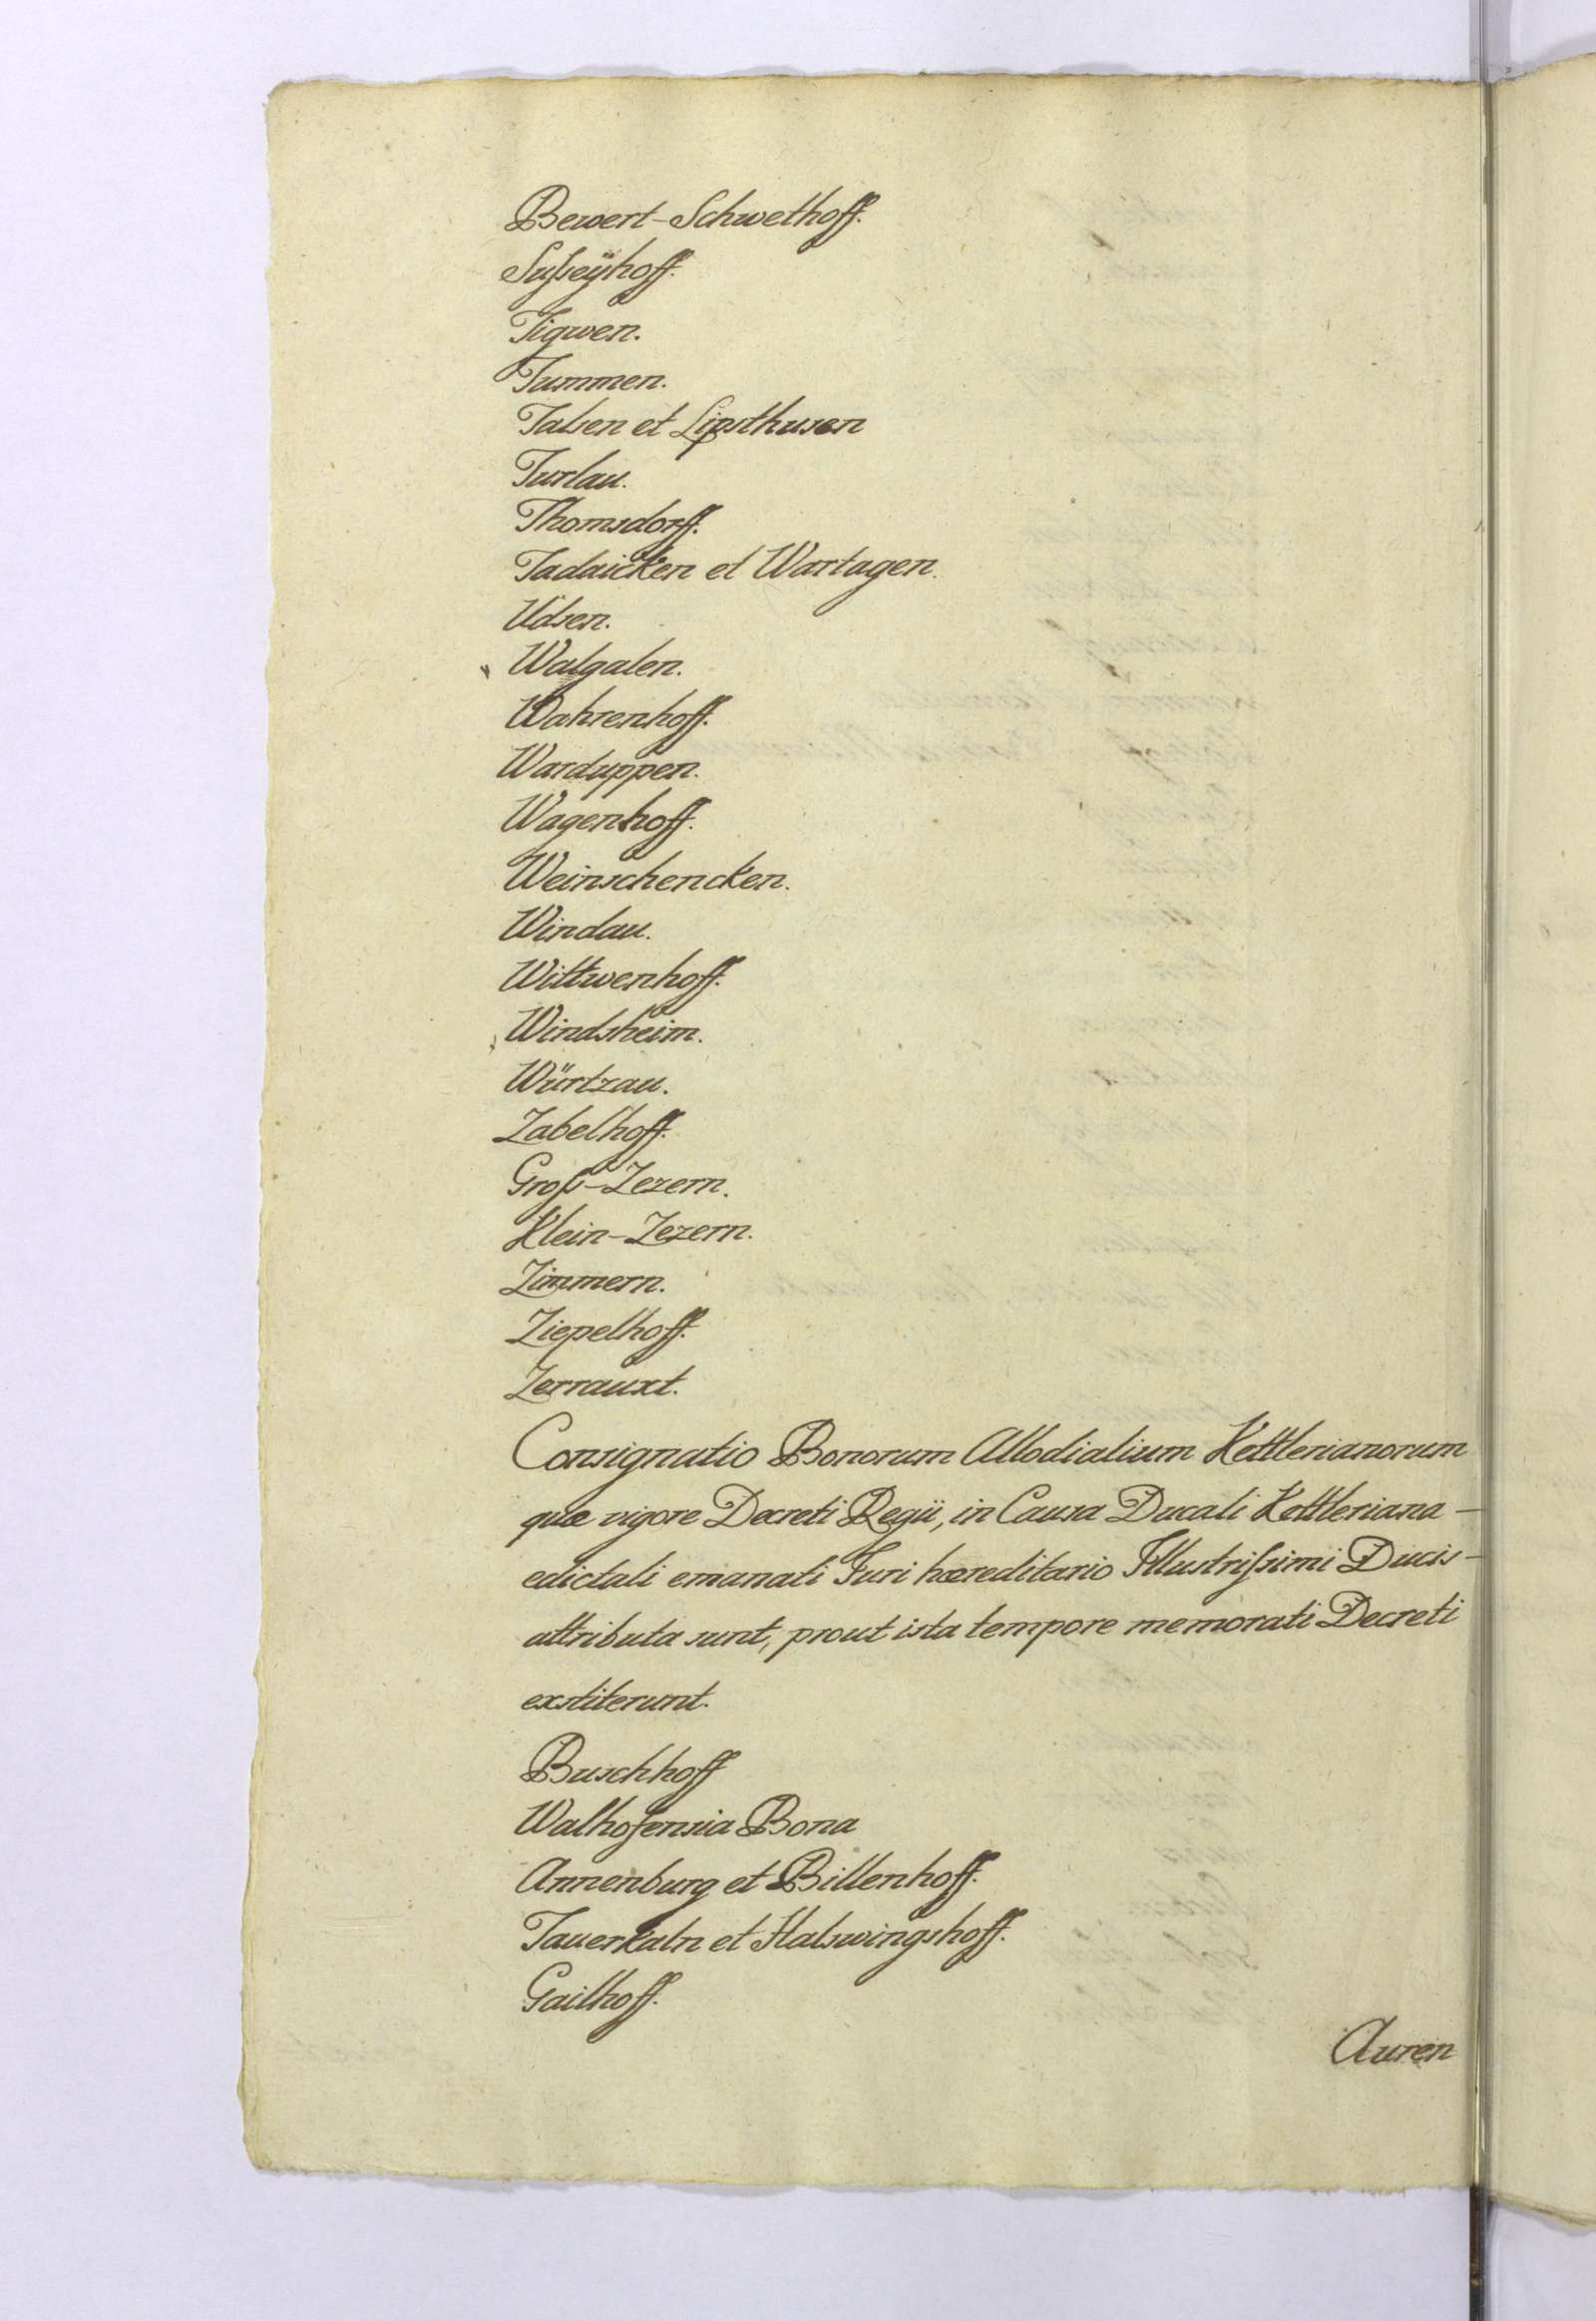 Bewert-Schwethoff.
Sußeÿhoff.
Tigwen.
Tummen.
Talsen et Lipsthusen
Turlau.
Thomsdorff.
Tadaicken et Wartagen.
Udsen.
Walgalen.
Wahrenhoff.
Warduppen.
Wagenhoff.
Weinschencken.
Windau.
Wittwenhoff.
Windsheim.
Würtzau.
Zabelhoff.
Groß-Zezern.
Klein-Zezern.
Zimmern.
Ziepelhoff.
Zerrauxt.
Consignatio Bonorum Allodialium Kettlerianorum
quæ vigore Decreti Regii, in Causa Ducali Kettleriana -
edictali emanati Juri hæreditario Illustrißimi Ducis -
attributa sunt, prout ista tempore memorati Decreti
exstiterunt.
Buschhoff
Walhofensia Bona
Annenburg et Billenhoff.
Tauerkaln et Halswingshoff.
Gailhoff.
Auren